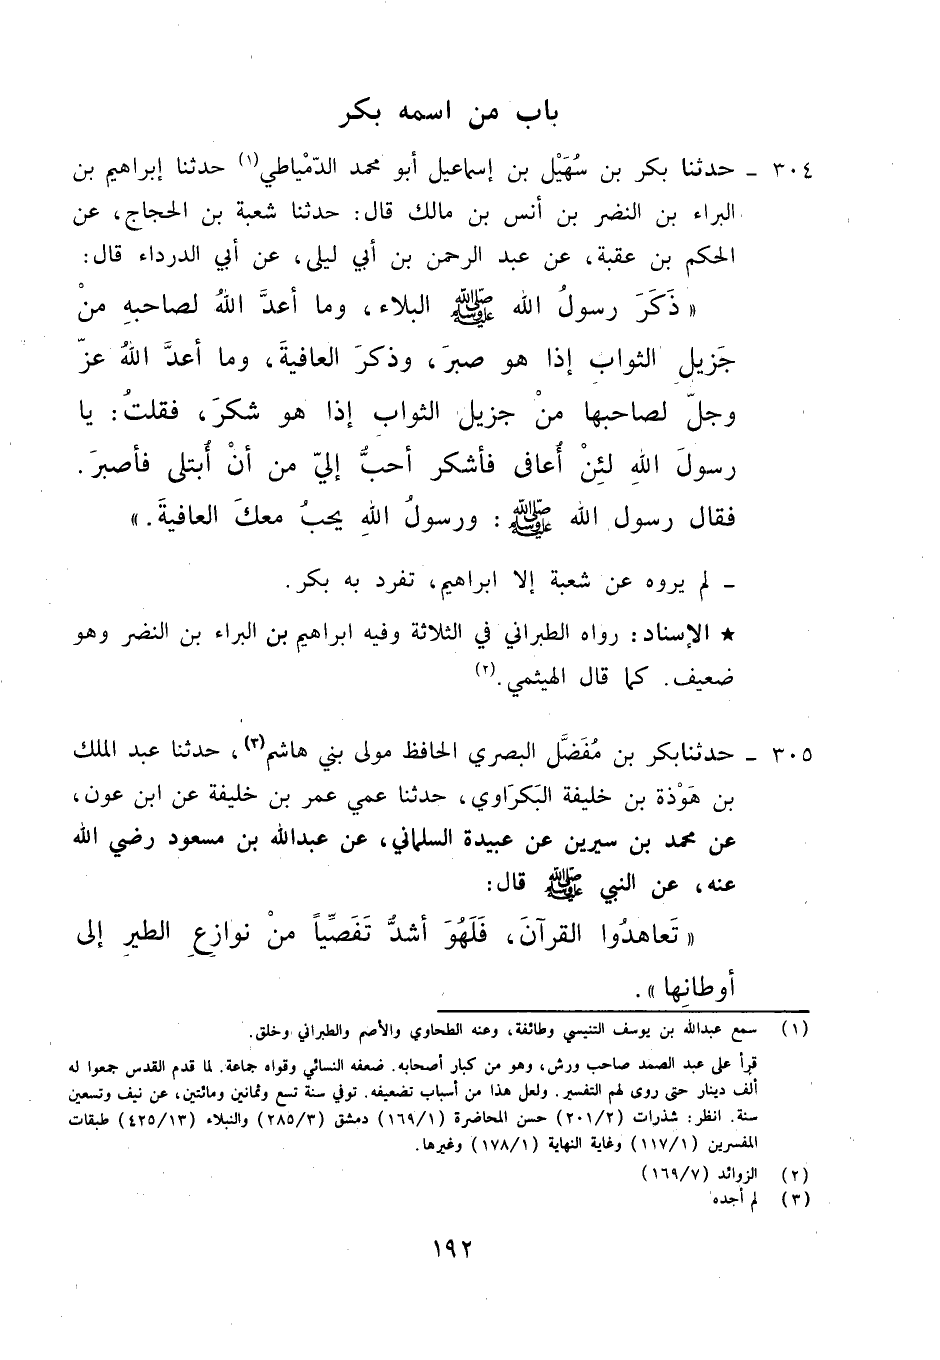 باب من اسمه بكر
٣٠٤ ـ حدثنا بكر بن سُهَيْل بن إسماعيل أبو محمد الدّمْياطي(١) حدثنا إبراهيم بن
البراء بن النضر بن أنس بن مالك قال: حدثنا شعبة بن الحجاج، عن
الحكم بن عقبة، عن عبد الرحمن بن أبي ليلى، عن أبي الدرداء قال:
« ذَكَرَ رسولُ الله ﷺ البلاء، وما أعدَّ اللهُ لصاحبهِ منْ
جَزيلِ الثوابِ إذا هو صبرَ، وذكرَ العافيةَ، وما أعدَّ اللهُ عزّ
وجلّ لصاحبها منْ جزيلِ الثوابِ إذا هو شكرَ، فقلتُ: يا
رسولَ اللهِ لئِنْ أُعافى فأشكر أحبُّ إليّ من أنْ أُبتلى فأصبرَ.
فقال رسول الله ﷺ: ورسولُ اللهِ يحبُ معكَ العافيةَ. »
ـ لم يروه عن شعبة إلا ابراهيم، تفرد به بكر.
★ الإسناد: رواه الطبراني في الثلاثة وفيه ابراهيم بن البراء بن النضر وهو
ضعيف. كما قال الهيثمي.(٢)
٣٠٥ ـ حدثنابكر بن مُفَضَّل البصري الحافظ مولى بني هاشم(٣)، حدثنا عبد الملك
بن هَوْذة بن خليفة البَكرَاوي، حدثنا عمي عمر بن خليفة عن ابن عون،
عن محمد بن سيرين عن عبيدة السلماني، عن عبدالله بن مسعود رضي الله
عنه، عن النبي ﷺ قال:
« تَعاهدُوا القرآنَ، فَلَهُوَ أشدُّ تَفَصِّياً منْ نوازِعِ الطيرِ إلى
أوطانِها ».
(١) سمع عبدالله بن يوسف التنيسي وطائفة، وعنه الطحاوي والأصم والطبراني وخلق.
قرأ على عبد الصمد صاحب ورش، وهو من كبار أصحابه. ضعفه النسائي وقواه جماعة. لما قدم القدس جمعوا له
ألف دينار حتى روى لهم التفسير. ولعل هذا من أسباب تضعيفه. توفي سنة تسع وثمانين ومائتين، عن نيف وتسعين
سنة. انظر: شذرات (٢٠١/٢) حسن المحاضرة (١٦٩/١) دمشق (٢٨٥/٣) والنبلاء (٤٢٥/١٣) طبقات
المفسرين (١١٧/١) وغاية النهاية (١٧٨/١) وغيرها.
(٢) الزوائد (١٦٩/٧)
(٣) لم أجده
١٩٢